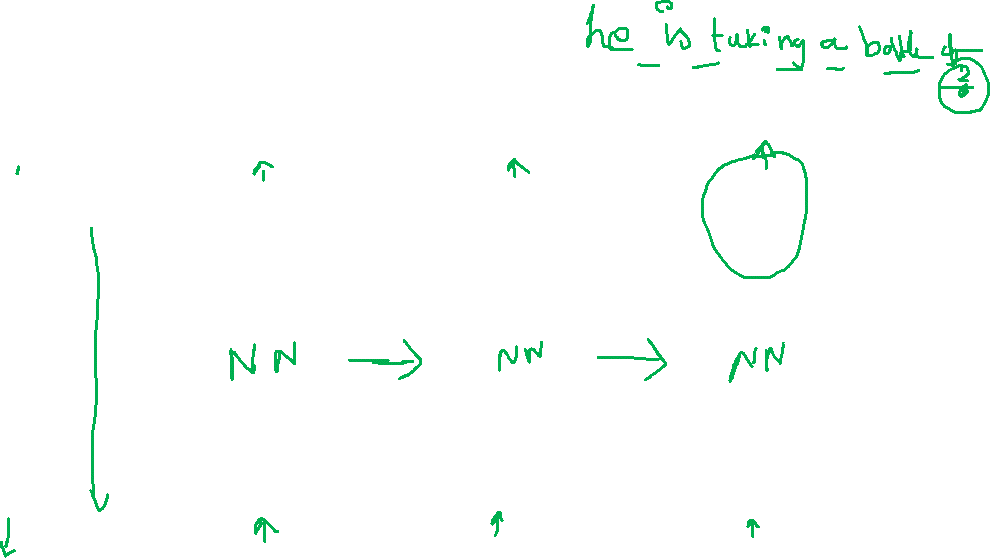 he is taking a bottle of
2
NN → NN → NN